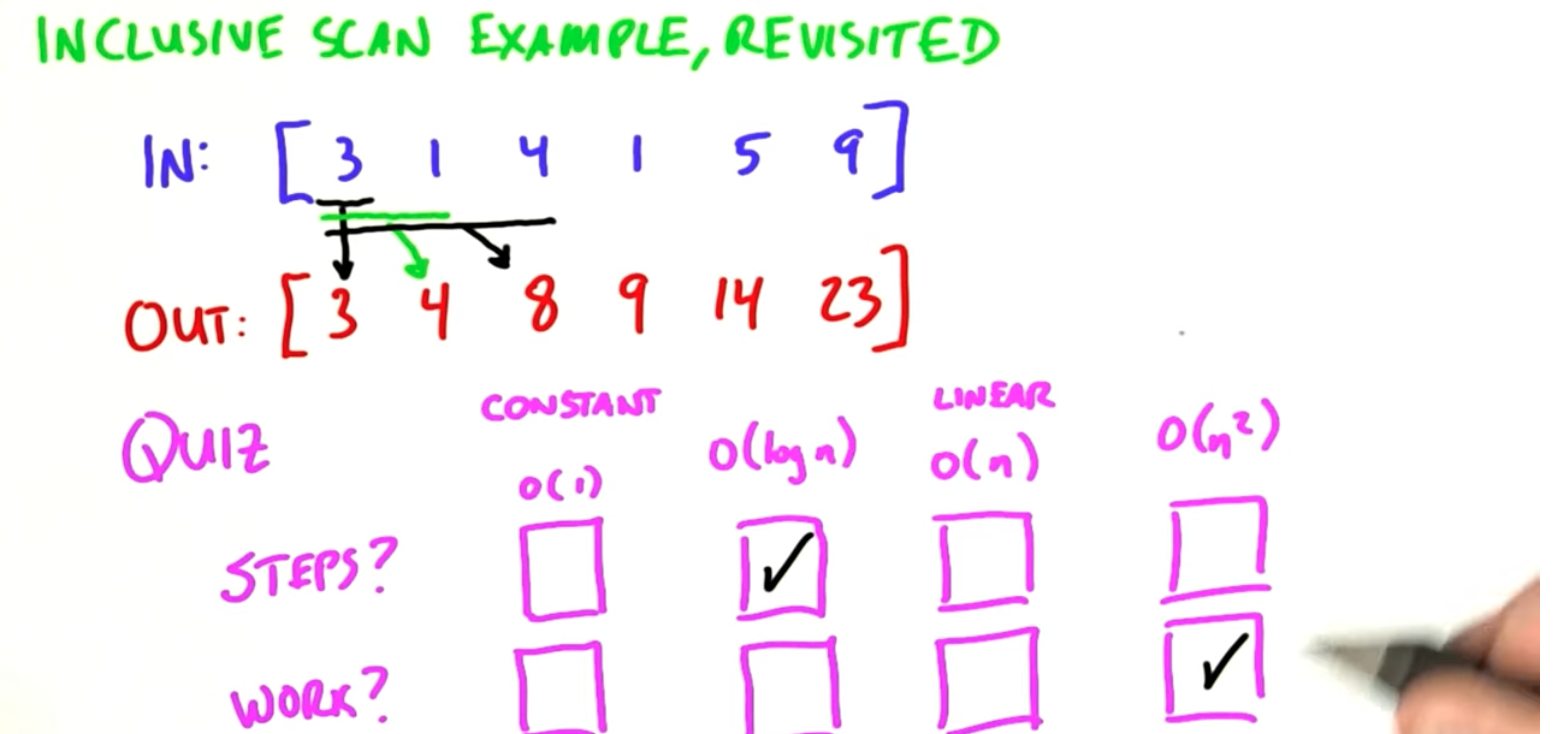 INCLUSIVE SCAN EXAMPLE, REVISITED
IN: [3 1 4 1 5 9]
OUT: [3 4 8 9 14 23]
QUIZ
CONSTANT O(1)
O(log n)
LINEAR O(n)
O(n²)
STEPS? ✓
WORK? ✓